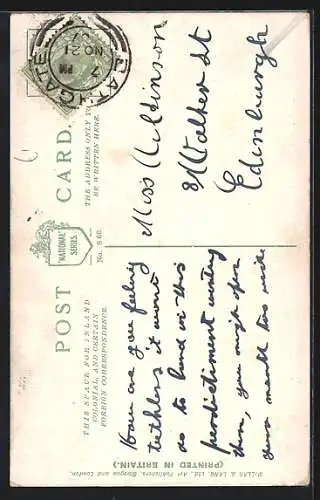 POST CARD.
"NATIONAL" SERIES.
No. S 60.
THIS SPACE FOR INLAND
COLONIAL, AND CERTAIN
FOREIGN CORRESPONDENCE.
THE ADDRESS ONLY TO
BE WRITTEN HERE.
BATHGATE
7 PM
NO 21
07
How are you feeling
teethless it wont
do to land in this
predictiment every
time, you might open
your mouth too wide
Miss
8 Walker St
Edinburgh
MILLAR & LANG, Ltd., Art Publishers, Glasgow and London.
(PRINTED IN BRITAIN.)